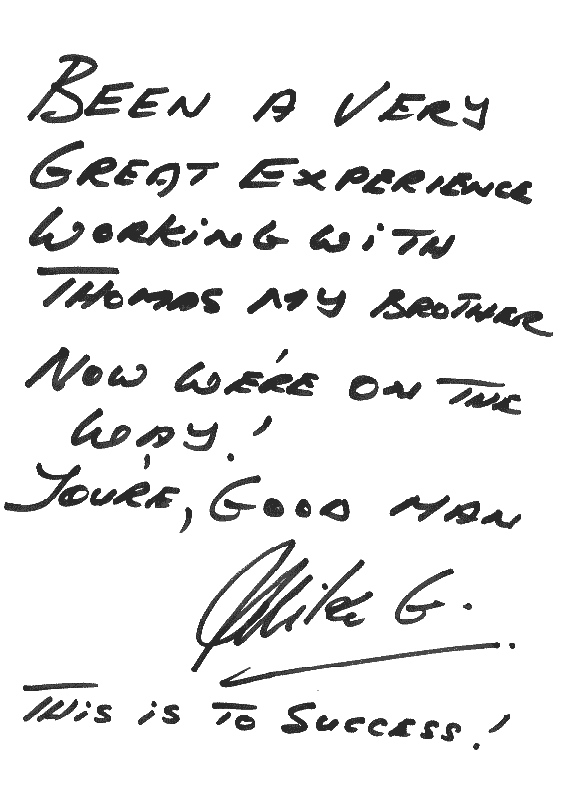 BEEN A VERY
GREAT EXPERIENCE
WORKING WITH
THOMAS MY BROTHER
NOW WE'RE ON THE
WAY!
YOU'RE, GOOD MAN
Mike G.
THIS IS TO SUCCESS!